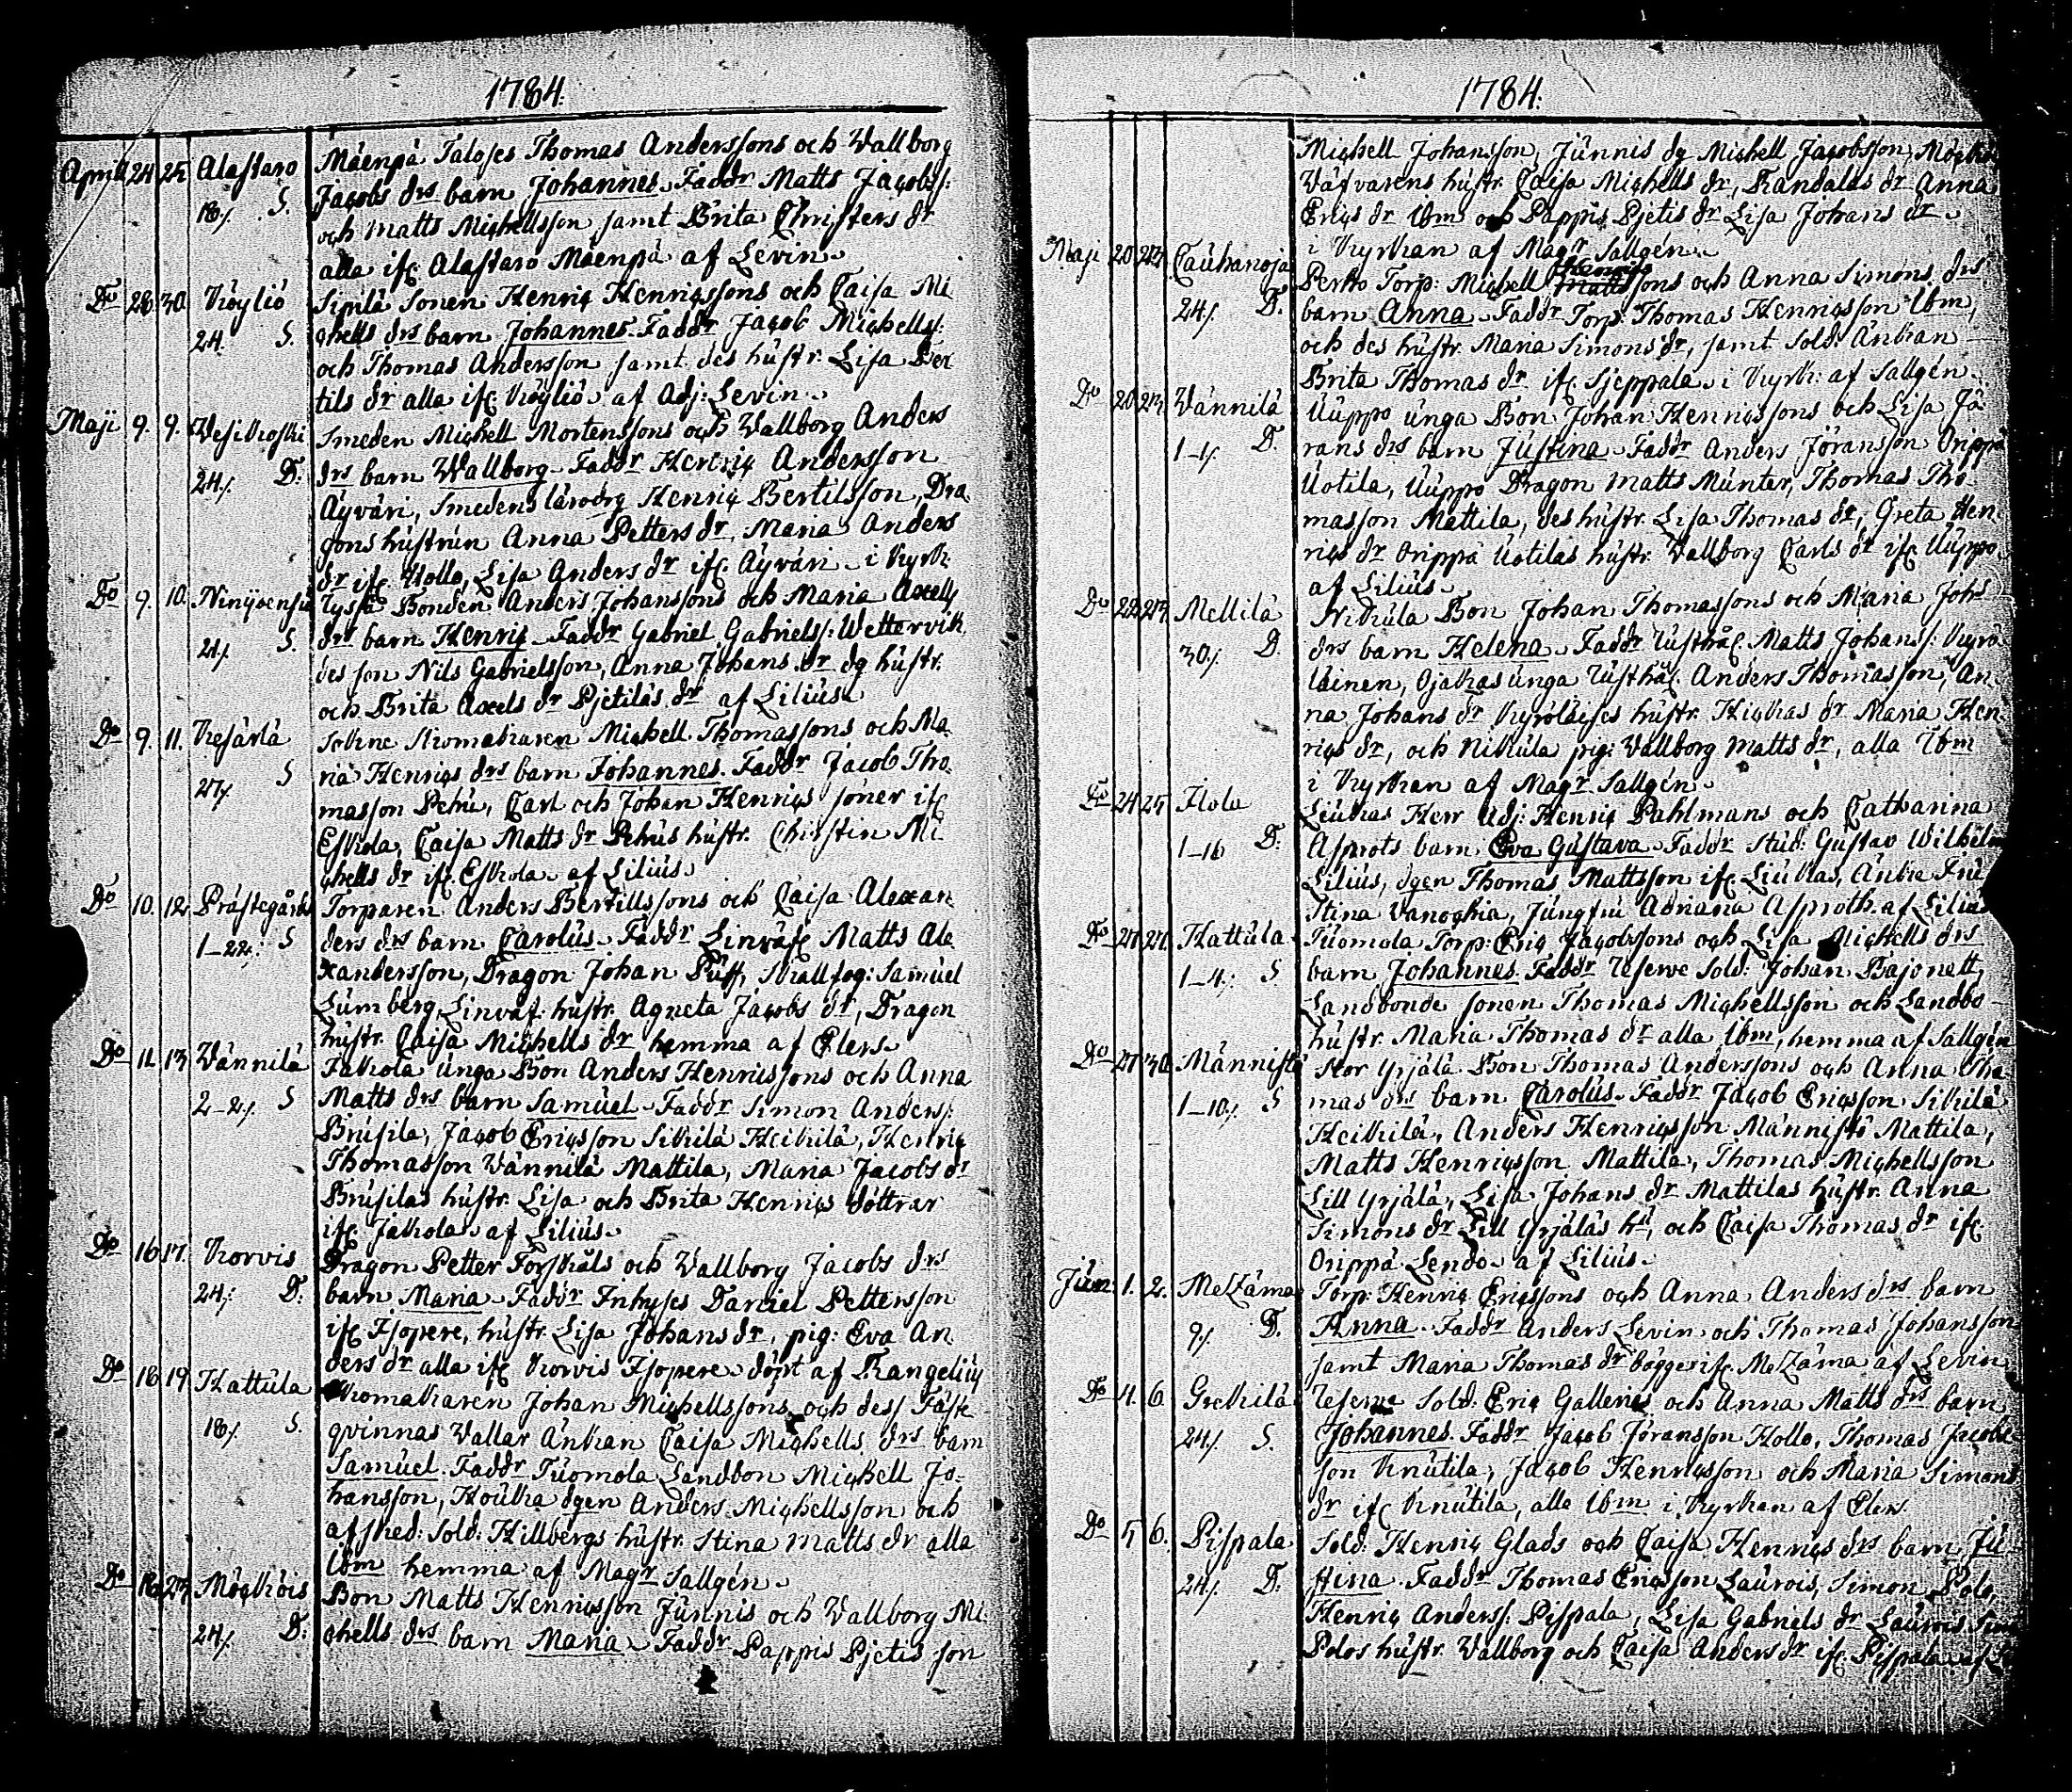 1784.
April 24 25 Alastaro Mäenpä Taloses Thomas Anderssons och Wallborg
18/. S. Jacobs drs barn Johannes. Faddr Matts Jacobss:
och Matts Michellsson samt Brita Christers dr
alla ifr. Alastaro Mäenpä af Levin.
Do 28. 30. Köyliö Sipilä Sonen Henric Henricssons och Caisa Mi-
24. S. chells drs barn Johannes. Faddr Jacob Michellss:
och Thomas Andersson samt des hustr. Lisa Ber
tils dr alla ifr. Köyliö af Adj: Levin.
Maji 9. 9. Wesikoski Smeden Michell Mortenssons och Wallborg Anders
24/. D. drs barn Wallborg. Faddr Henric Andersson
Äyväri, Smedens lärodrg Henric Bertilsson, Dra-
gons hustrun Anna Petters dr, Maria Anders
dr ifr. Hollo, Lisa Anders dr ifr. Äyväri i Kyrk:
Do 9. 10. Ninijoensu Tyssä Bonden Anders Johanssons och Maria Axells
21/. S. drs barn Henric. Faddr Gabriel Gabrielss: Wettervik
des son Nils Gabrielsson, Anna Johans dr dg hustr.
och Brita Axels dr Pjetiläs dr af Lilius.
Do 9. 11. Kesärlä Sockne Skomakaren Michell Thomassons och Ma-
27/. S ria Henrics drs barn Johannes. Faddr Jacob Tho-
masson Pehu, Carl och Johan Henrics söner ifr
Eskola, Caisa Matts dr Pehus hustr. Christin Mi-
chells dr ifr. Eskola af Lilius.
Do 10. 12 Prästegårds Torparen Anders Bertillssons och Caisa Alexan-
1-22/: S ders drs barn Carolus. Faddr Linväf. Matts Ale
xandersson, Dragon Johan Puff, Skallfog: Samuel
Lumberg, Linväf: hustr. Agneta Jacobs dr, Dragon
hustr. Caisa Michells dr hemma af Elers.
Do 11. 13 Wännilä Jakola unga Bon Anders Henricssons och Anna
2-2/. S Matts drs barn Samuel. Faddr Simon Anderss:
Brusila, Jacob Ericsson Sikilä Heikilä, Henric
Thomasson Wännilä Mattila, Maria Jacobs dr
Brusilas hustr. Lisa och Brita Henrics döttrar
ifr. Jakola af Lilius.
Do 16 17. Korvis Dragon Petter Forskåls och Wallborg Jacobs drs
24/: D: barn Maria. Faddr Inhyses Daniel Pettersson
ifr. Hjopere, hustr. Lisa Johans dr, pig: Eva An-
ders dr alla ifr. Korvis Hjopere döpt af Frangelius
Do 18 19 Hattula Skomakaren Johan Michellssons och dess Fäste
18/. S. qvinnas Vallar Änkan Caisa Michells drs barn
Samuel. Faddr Tuomola Landbon Michell Jo-
hansson, Houka dgen Anders Michellsson och
afsked: Sold: Hillbergs hustr. Stina Matts dr alla
ibm hemma af Magr Sallgén.
Do 18 23 Möckiöis Bon Matts Henricsson Junnis och Wallborg Mi-
24/. D: chells drs barn Maria. Faddr Pappis Pjetis son
1784.
Michell Johansson, Junnis dg Michell Jacobsson, Möckiö
Väfvarens hustr. Caisa Michells dr, Randalas dr Anna
Erics dr ibm och Pappis Pjetis dr Lisa Johans dr
i Kyrkan af Magr Sallgén.
Maji 20 23 Cauhanoja Perko Torp: Michell Henrics Matts sons och Anna Simons drs
24/. D. barn Anna. Faddr Torp. Thomas Henricsson ibm,
och des hustr. Maria Simons dr, samt Sold. Änkan
Brita Thomas dr ifr. Sjeppala i Kyrk: af Sallgén.
Do 20 23. Wännilä Uuppo unga Bon Johan Henricssons och Lisa Jö-
1-1/. D. rans drs barn Justina. Faddr Anders Jöransson Orippä
Uotila, Uuppo Dragon Matts Munter, Thomas Tho-
masson Mattila, des hustr. Lisa Thomas dr, Greta Hen-
rics dr Orippä Uotilas hustr. Wallborg Carls dr ifr. Uuppo
af Lilius.
Do 22 23. Mellilä Nikula Bon Johan Thomassons och Maria Johs
30/. D. drs barn Helena. Faddr Rusthål. Matts Johanss: Kyrö-
läinen, Ojakas unga Rusthål. Anders Thomasson, An-
na Johans dr Kyröläises hustr. Hickas dr Maria Hen-
rics dr, och Nikula pig: Wallborg Matts dr, alla ibm
i Kyrkan af Magr Sallgén.
Do 24 25 Ilola Liukas Herr Adj: Henric Pahlmans och Catharina
1-16 D: Asprots barn Eva Gustava. Faddr Stud: Gustav Wilhelm
Lilius, dgen Thomas Mattsson ifr. Liukas, Änke Fru
Stina Vanochia, Jungfru Adriana Asproth. af Lilius
Do 21. 21. Hattula Tuomola Torp: Eric Jacobssons och Lisa Michells drs
1-4/: S. barn Johannes. Faddr Reserve Sold: Johan Bajonett,
Landbonde sonen Thomas Michellsson och Landbo
hustr. Maria Thomas dr alla ibm, hemma af Sallgén
Do 27 30. Männistö Stor Yrjälä Bon Thomas Anderssons och Anna Tho
1-10/. S mas drs barn Carolus. Faddr Jacob Ericsson Sikilä
Heikilä, Anders Henricsson Männistö Mattila,
Matts Henricsson Mattila, Thomas Michellsson
Lill Yrjälä, Lisa Johans dr Mattilas hustr. Anna
Simons dr Lill Yrjäläs hu, och Caisa Thomas dr ifr.
Orippä Lendo af Lilius.
Jun: 1. 2. Meltzäma Torp: Henric Ericssons och Anna Anders drs barn
9/. D. Anna. Faddr Anders Levin och Thomas Johansson
samt Maria Thomas dr bägge ifr. Meltzäma af Levin
Do 4. 6. Grekilä Reserve Sold: Eric Galleries och Anna Matts drs barn
24/. S. Johannes. Faddr Jacob Jöransson Hollo, Thomas Jacobs
son Knutila, Jacob Henricsson och Maria Simons
dr ifr. Knutila, alla ibm i Kyrkan af Elers.
Do 5 6. Pispala Sold: Henric Glads och Caisa Henrics drs barn Ju-
24/. D. stina. Faddr Thomas Ericsson Laurois, Simon Polo,
Henric Anderss: Pispala, Lisa Gabriels dr Laurois
Polos hustr. Wallborg och Caisa Anders dr ifr. Pispala af